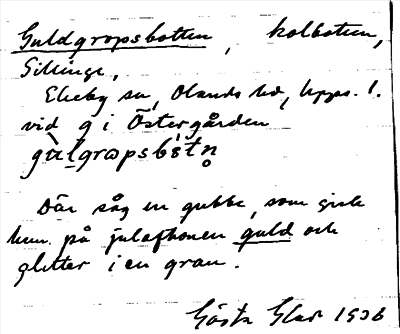 Guldgropsbotten, kolbotten,
Sillinge,
Ekeby sn, Olands hd, Upps. l.
vid g i Östergården
gùlgrɷpsbótn̥
Där såg en gubbe, som gick
hem på julaftonen guld och
glitter i en gran.
Gösta Glas 1936